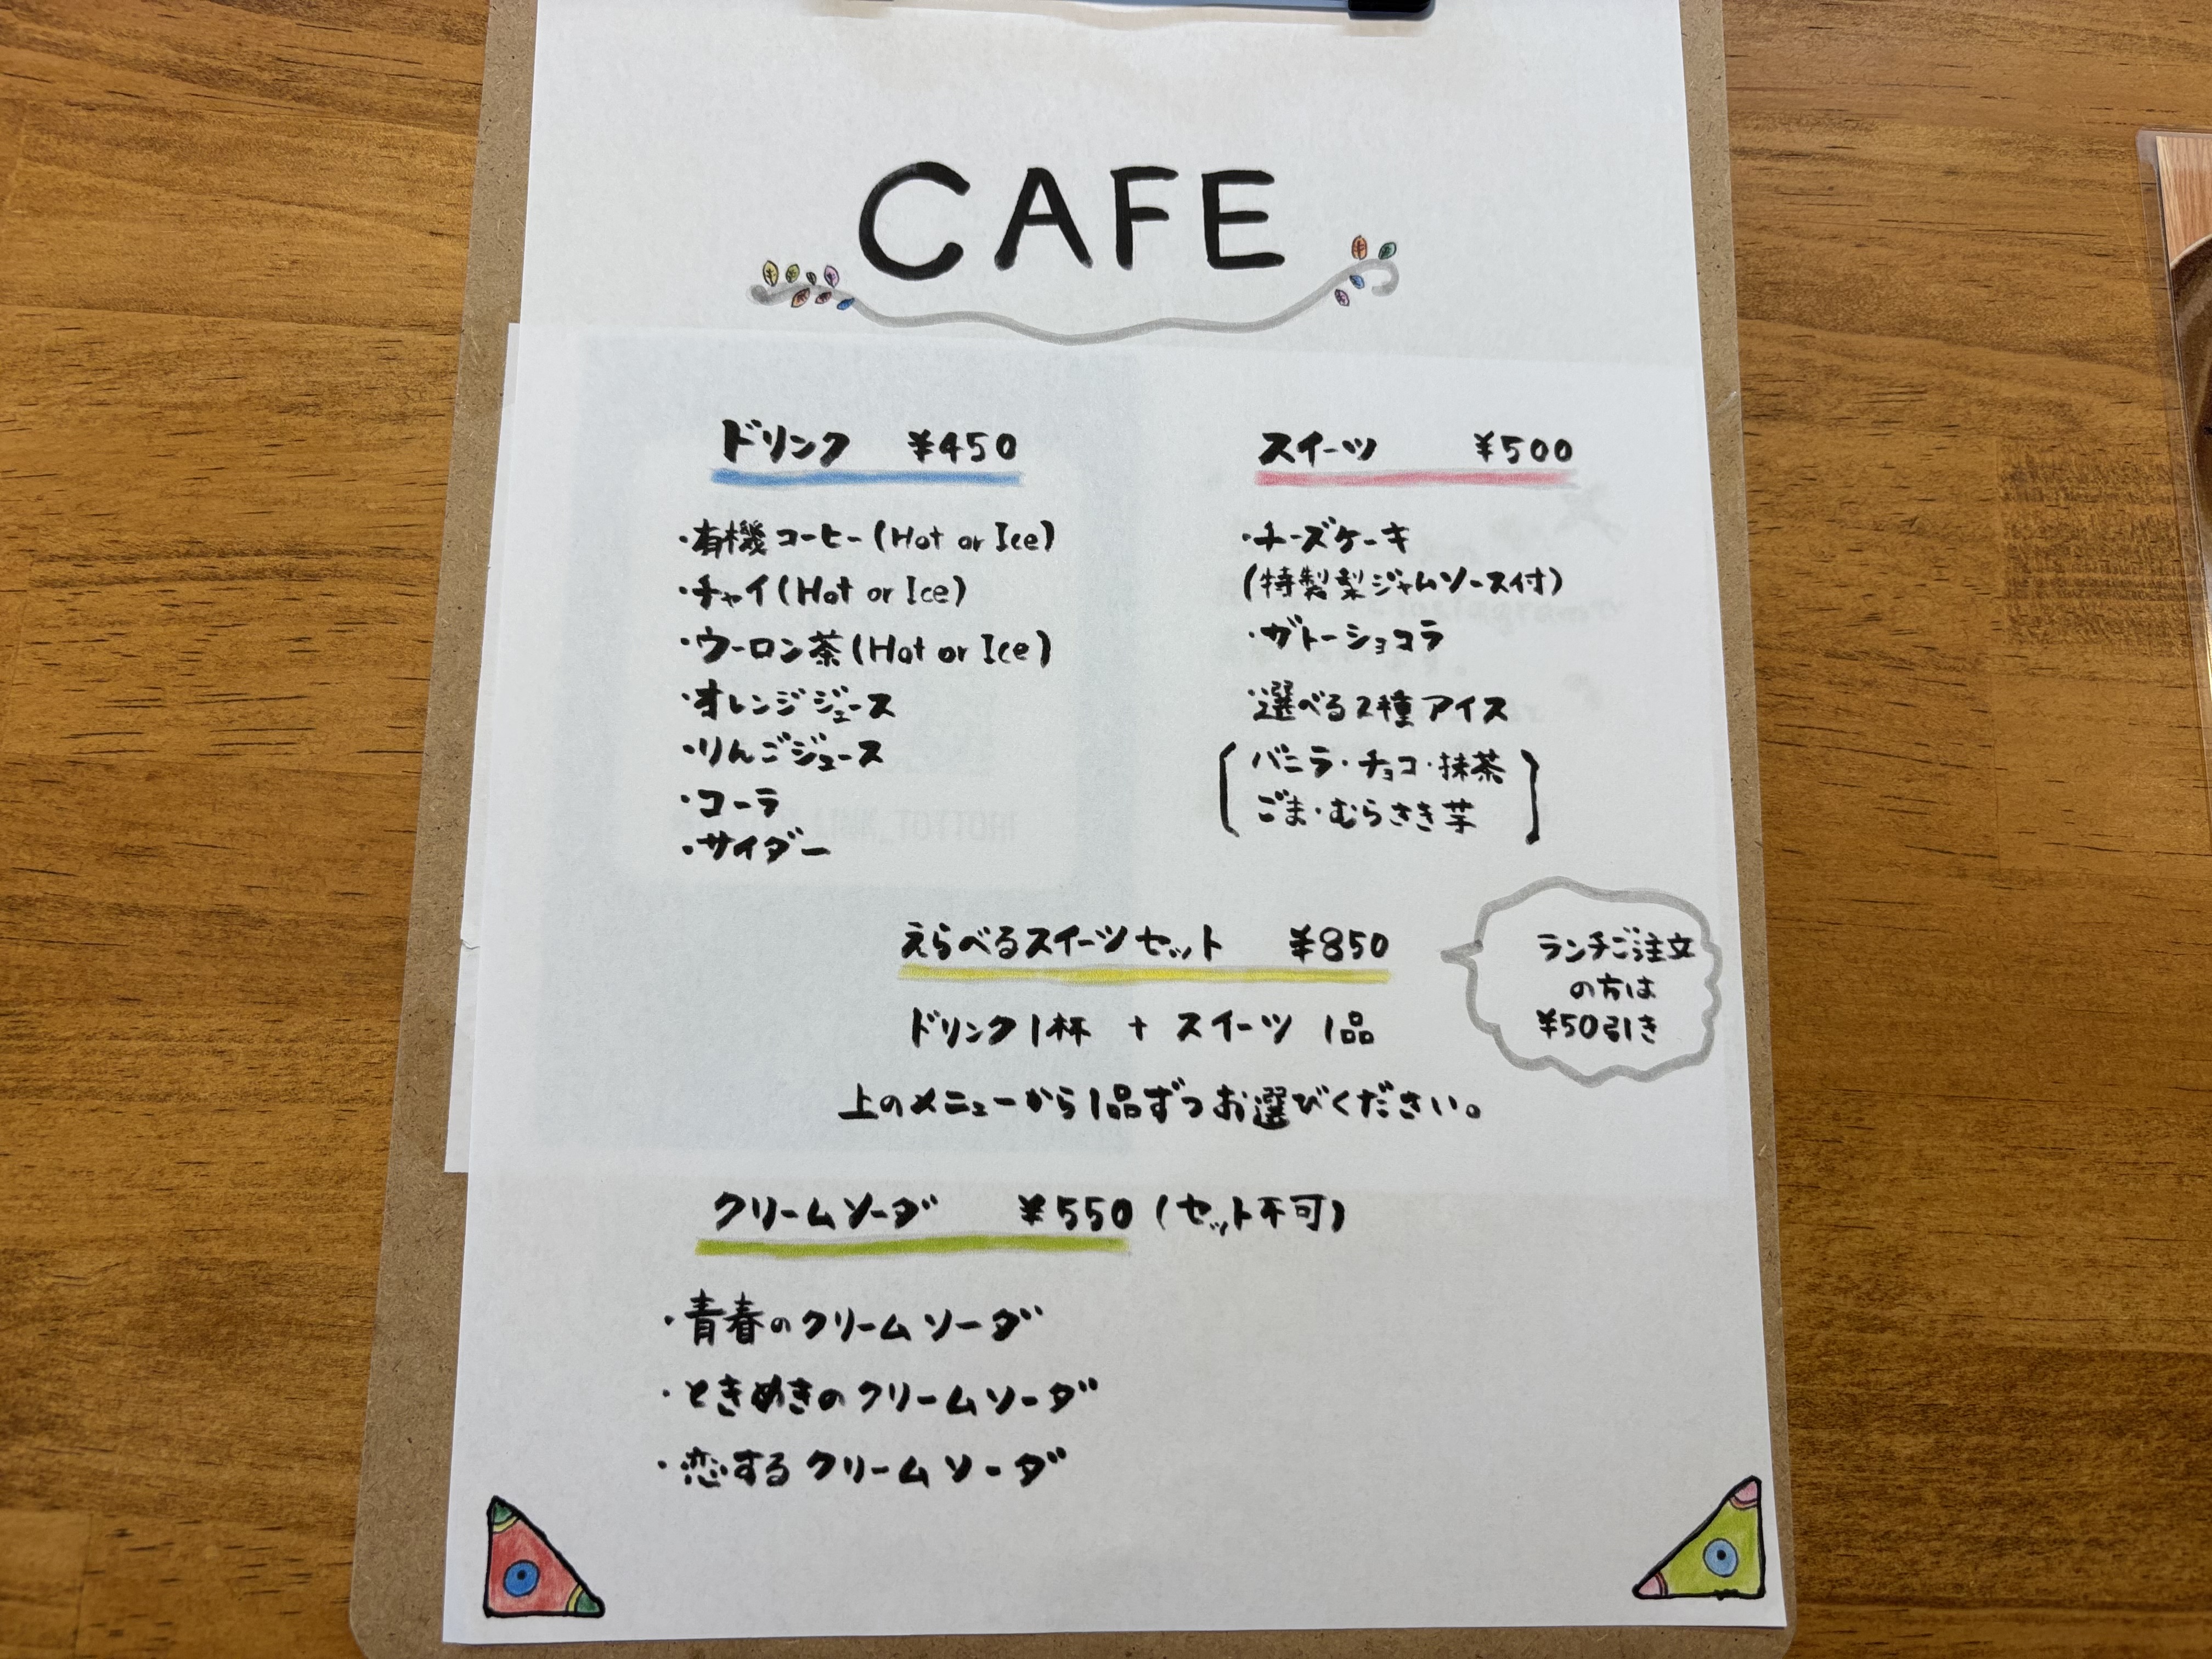 CAFE
ドリンク ¥450
・有機コーヒー(Hot or Ice)
・チャイ(Hot or Ice)
・ウーロン茶(Hot or Ice)
・オレンジジュース
・りんごジュース
・コーラ
・サイダー
スイーツ ¥500
・チーズケーキ
(特製梨ジャムソース付)
・ガトーショコラ
・選べる2種アイス
[バニラ・チョコ・抹茶
ごま・むらさき芋]
えらべるスイーツセット ¥850
ドリンク1杯 + スイーツ 1品
上のメニューから1品ずつお選びください。
ランチご注文
の方は
¥50引き
クリームソーダ ¥550(セット不可)
・青春のクリームソーダ
・ときめきのクリームソーダ
・恋するクリームソーダ